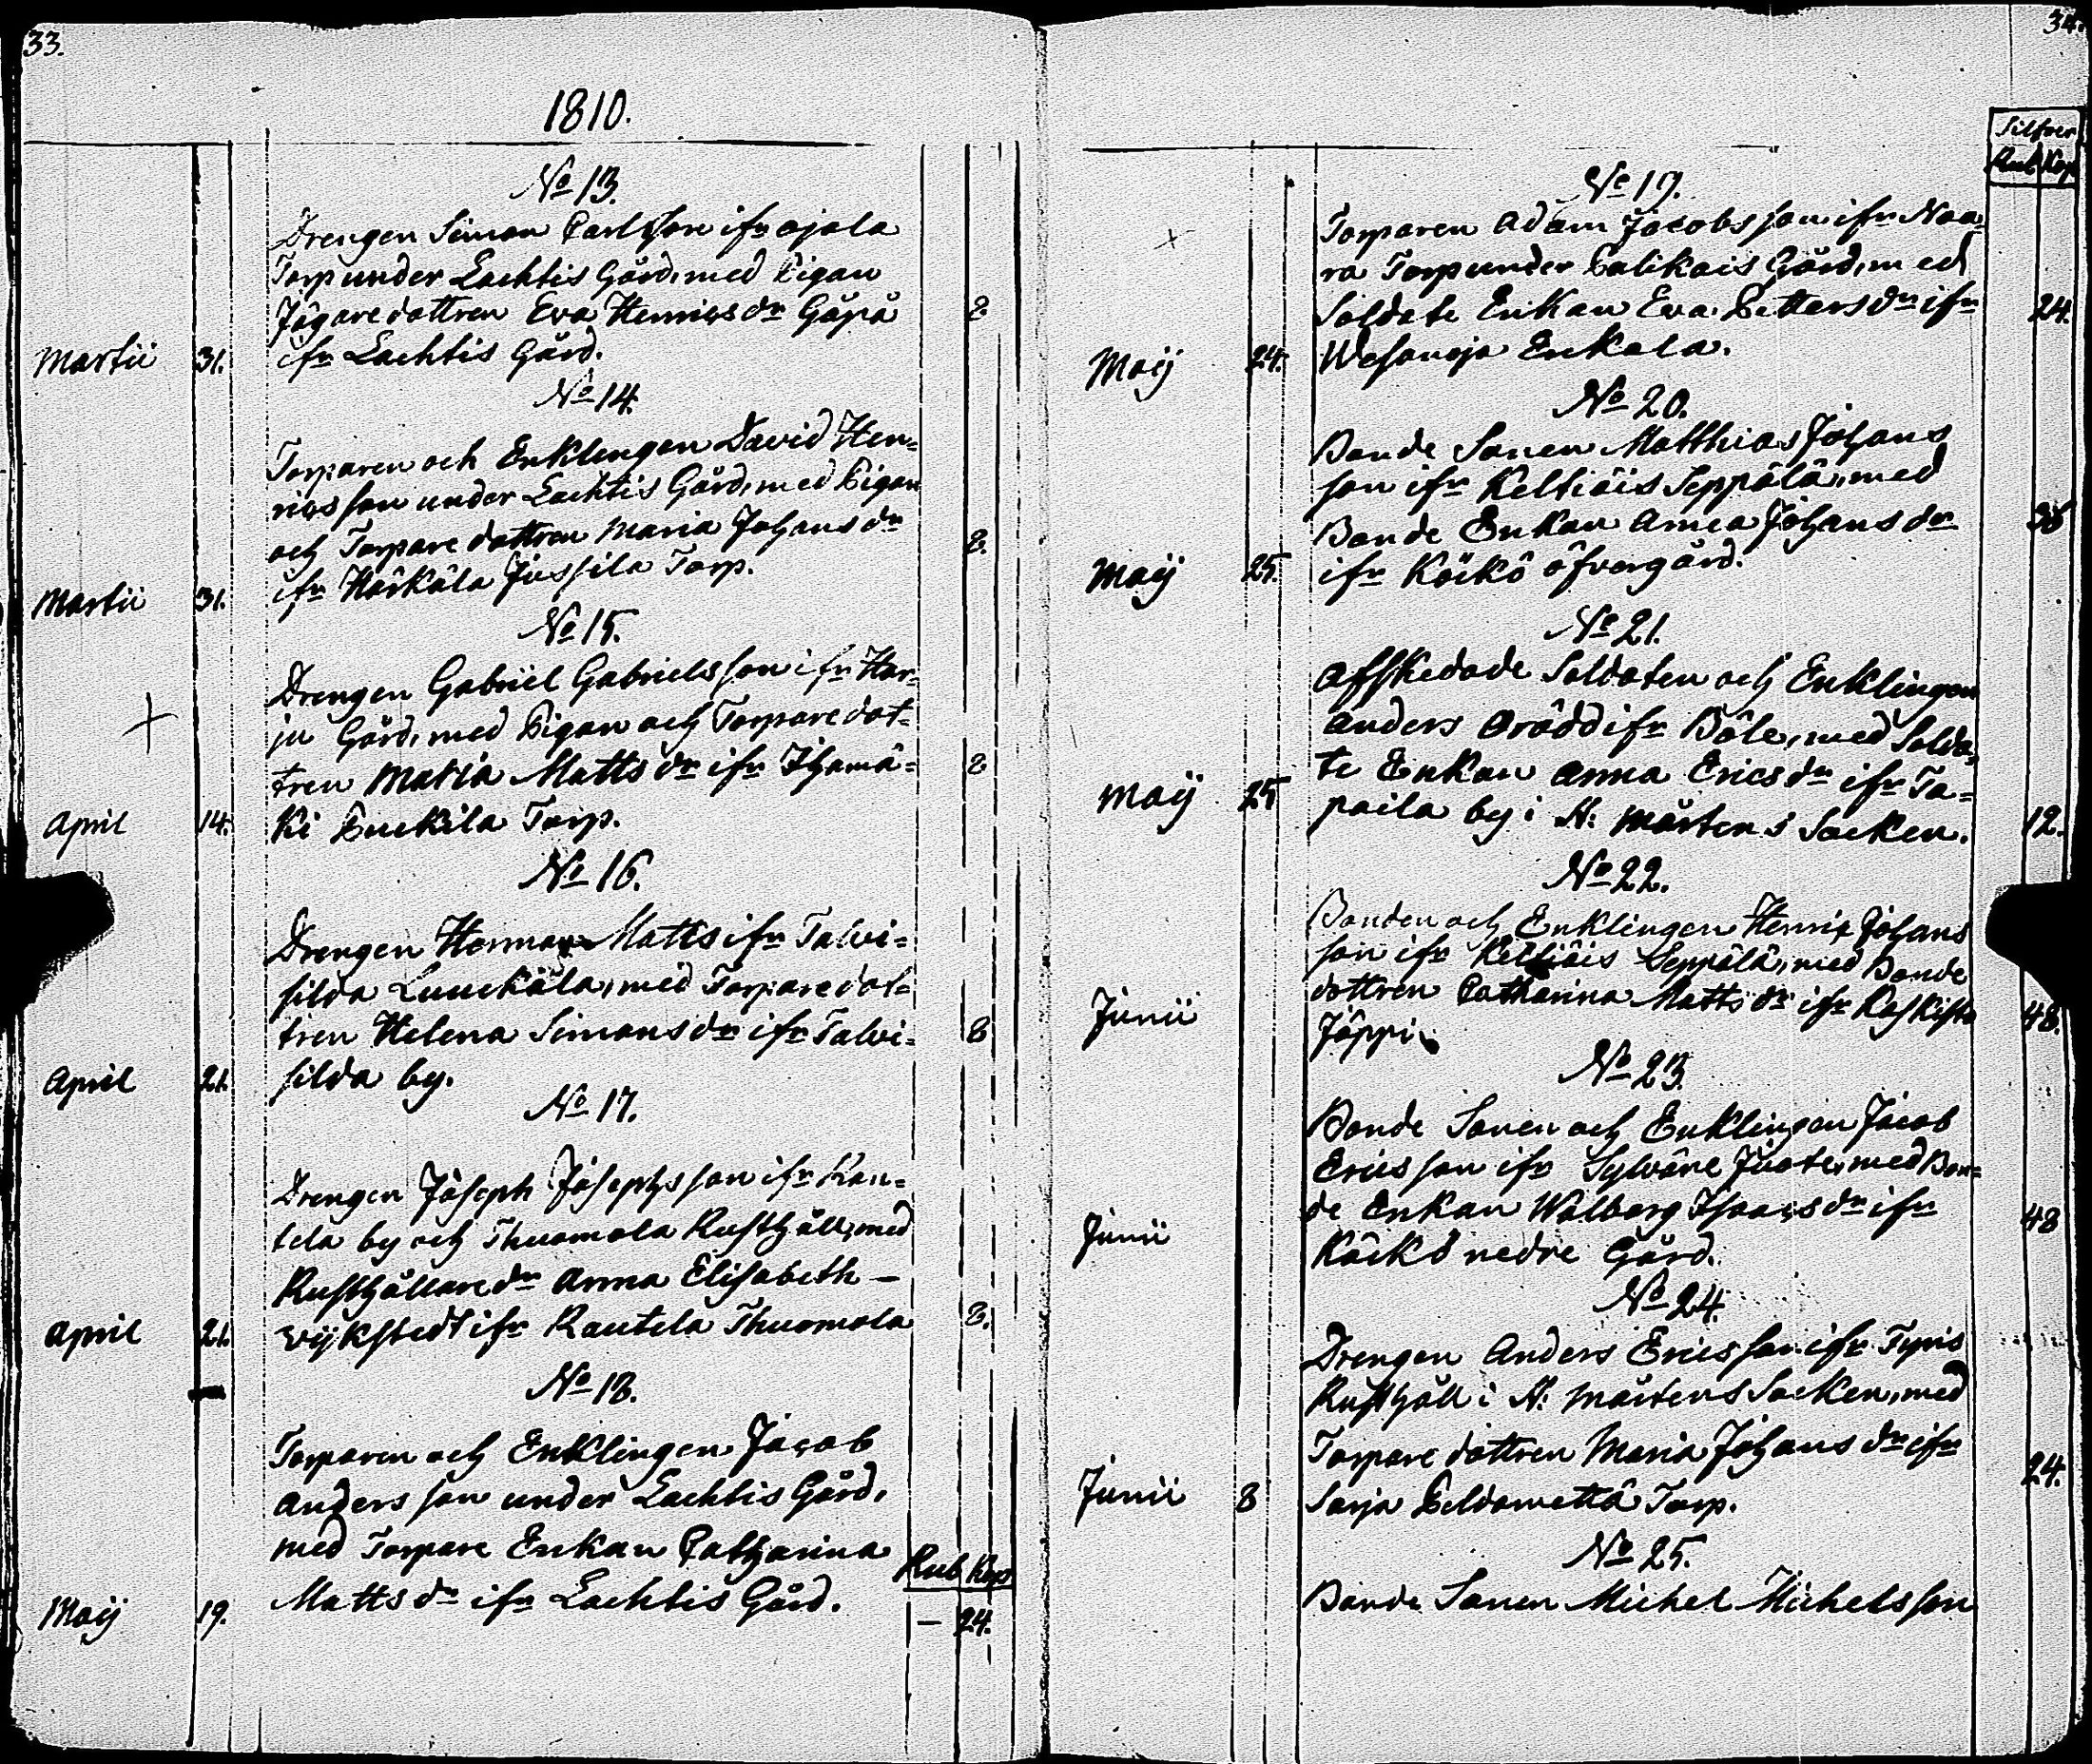 33.
1810.
No 13.
Drengen Simon Carlsson ifr Ojala
Torp under Lachtis Gård, med Pigan
Jägaredottren Eva Henricsdr Gåpå
8.
Martii 31. ifr Lachtis Gård.
No 14.
Torparen och Enklingen David Hen=
ricsson under Lachtis Gård, med Pigan
och Torpare dottren Maria Johansdr
8.
Martii 31. ifr Härkälä Jussila Torp.
No 15.
Drengen Gabriel Gabrielsson ifr Har=
ju Gård, med Pigan och Torpare dot=
tren Maria Mattsdr ifr Ihamä=
8
April 14. ki Puckila Torp.
No 16.
Drengen Herman Matts ifr Talvi=
silda Luuckäla, med Torpare dot=
tren Helena Simonsdr ifr Talvi=
8
April 21. silda by.
No 17.
Drengen Joseph Josephsson ifr Ran=
tela by och Thuomola Rusthåll, med
Rusthållaredr Anna Elisabeth —
April 21. Wijkstedt ifr Rautela Thuomola 8.
No 18.
Torparen och Enklingen Jacob
Andersson under Lachtis Gård,
med Torpare Enkan Catharina
Rub Kop
Maij 19. Matts dr ifr Lachtis Gård. — 24.
34.
Silfver
Rub Kop
No 19.
Torparen Adam Jacobsson ifr Naa=
ra Torp under Palikais Gård, med
Soldate Enkan Eva Pettersdr ifr 24.
Maij 24. Wesanoja Enkala.
No 20.
Bonde Sonen Matthias Johans
son ifr Keltiäis Seppälä, med
Bonde Enkan Anna Johansdr
Maij 25. ifr Köikö öfvergård.
No 21.
Affskedade Soldaten och Enklingen
Anders Orädd ifr Böle, med Solda=
te Enkan Anna Ericsdr ifr Ta=
Maij 25 paila by i St: Mårtens Socken. 12.
No 22.
Bonden och Enklingen Henric Johans
son ifr Keltiäis Seppälä, med Bonde
dottren Catharina Mattsdr ifr Raskisto 48.
Junii Jöppi.
No 23.
Bonde Sonen och Enklingen Jacob
Ericsson ifr Sylväne Juote, med Bon=
de Enkan Walborg Isaacsdr ifr 48
Junii Köikö nedre Gård.
No 24.
Drengen Anders Ericsson ifr Tyris
Rusthåll i St: Mårtens Socken, med
Torpare dottren Maria Johansdr ifr 24.
Junii 8 Sarja Peldometta Torp.
No 25.
Bonde Sonen Michel Michelsson